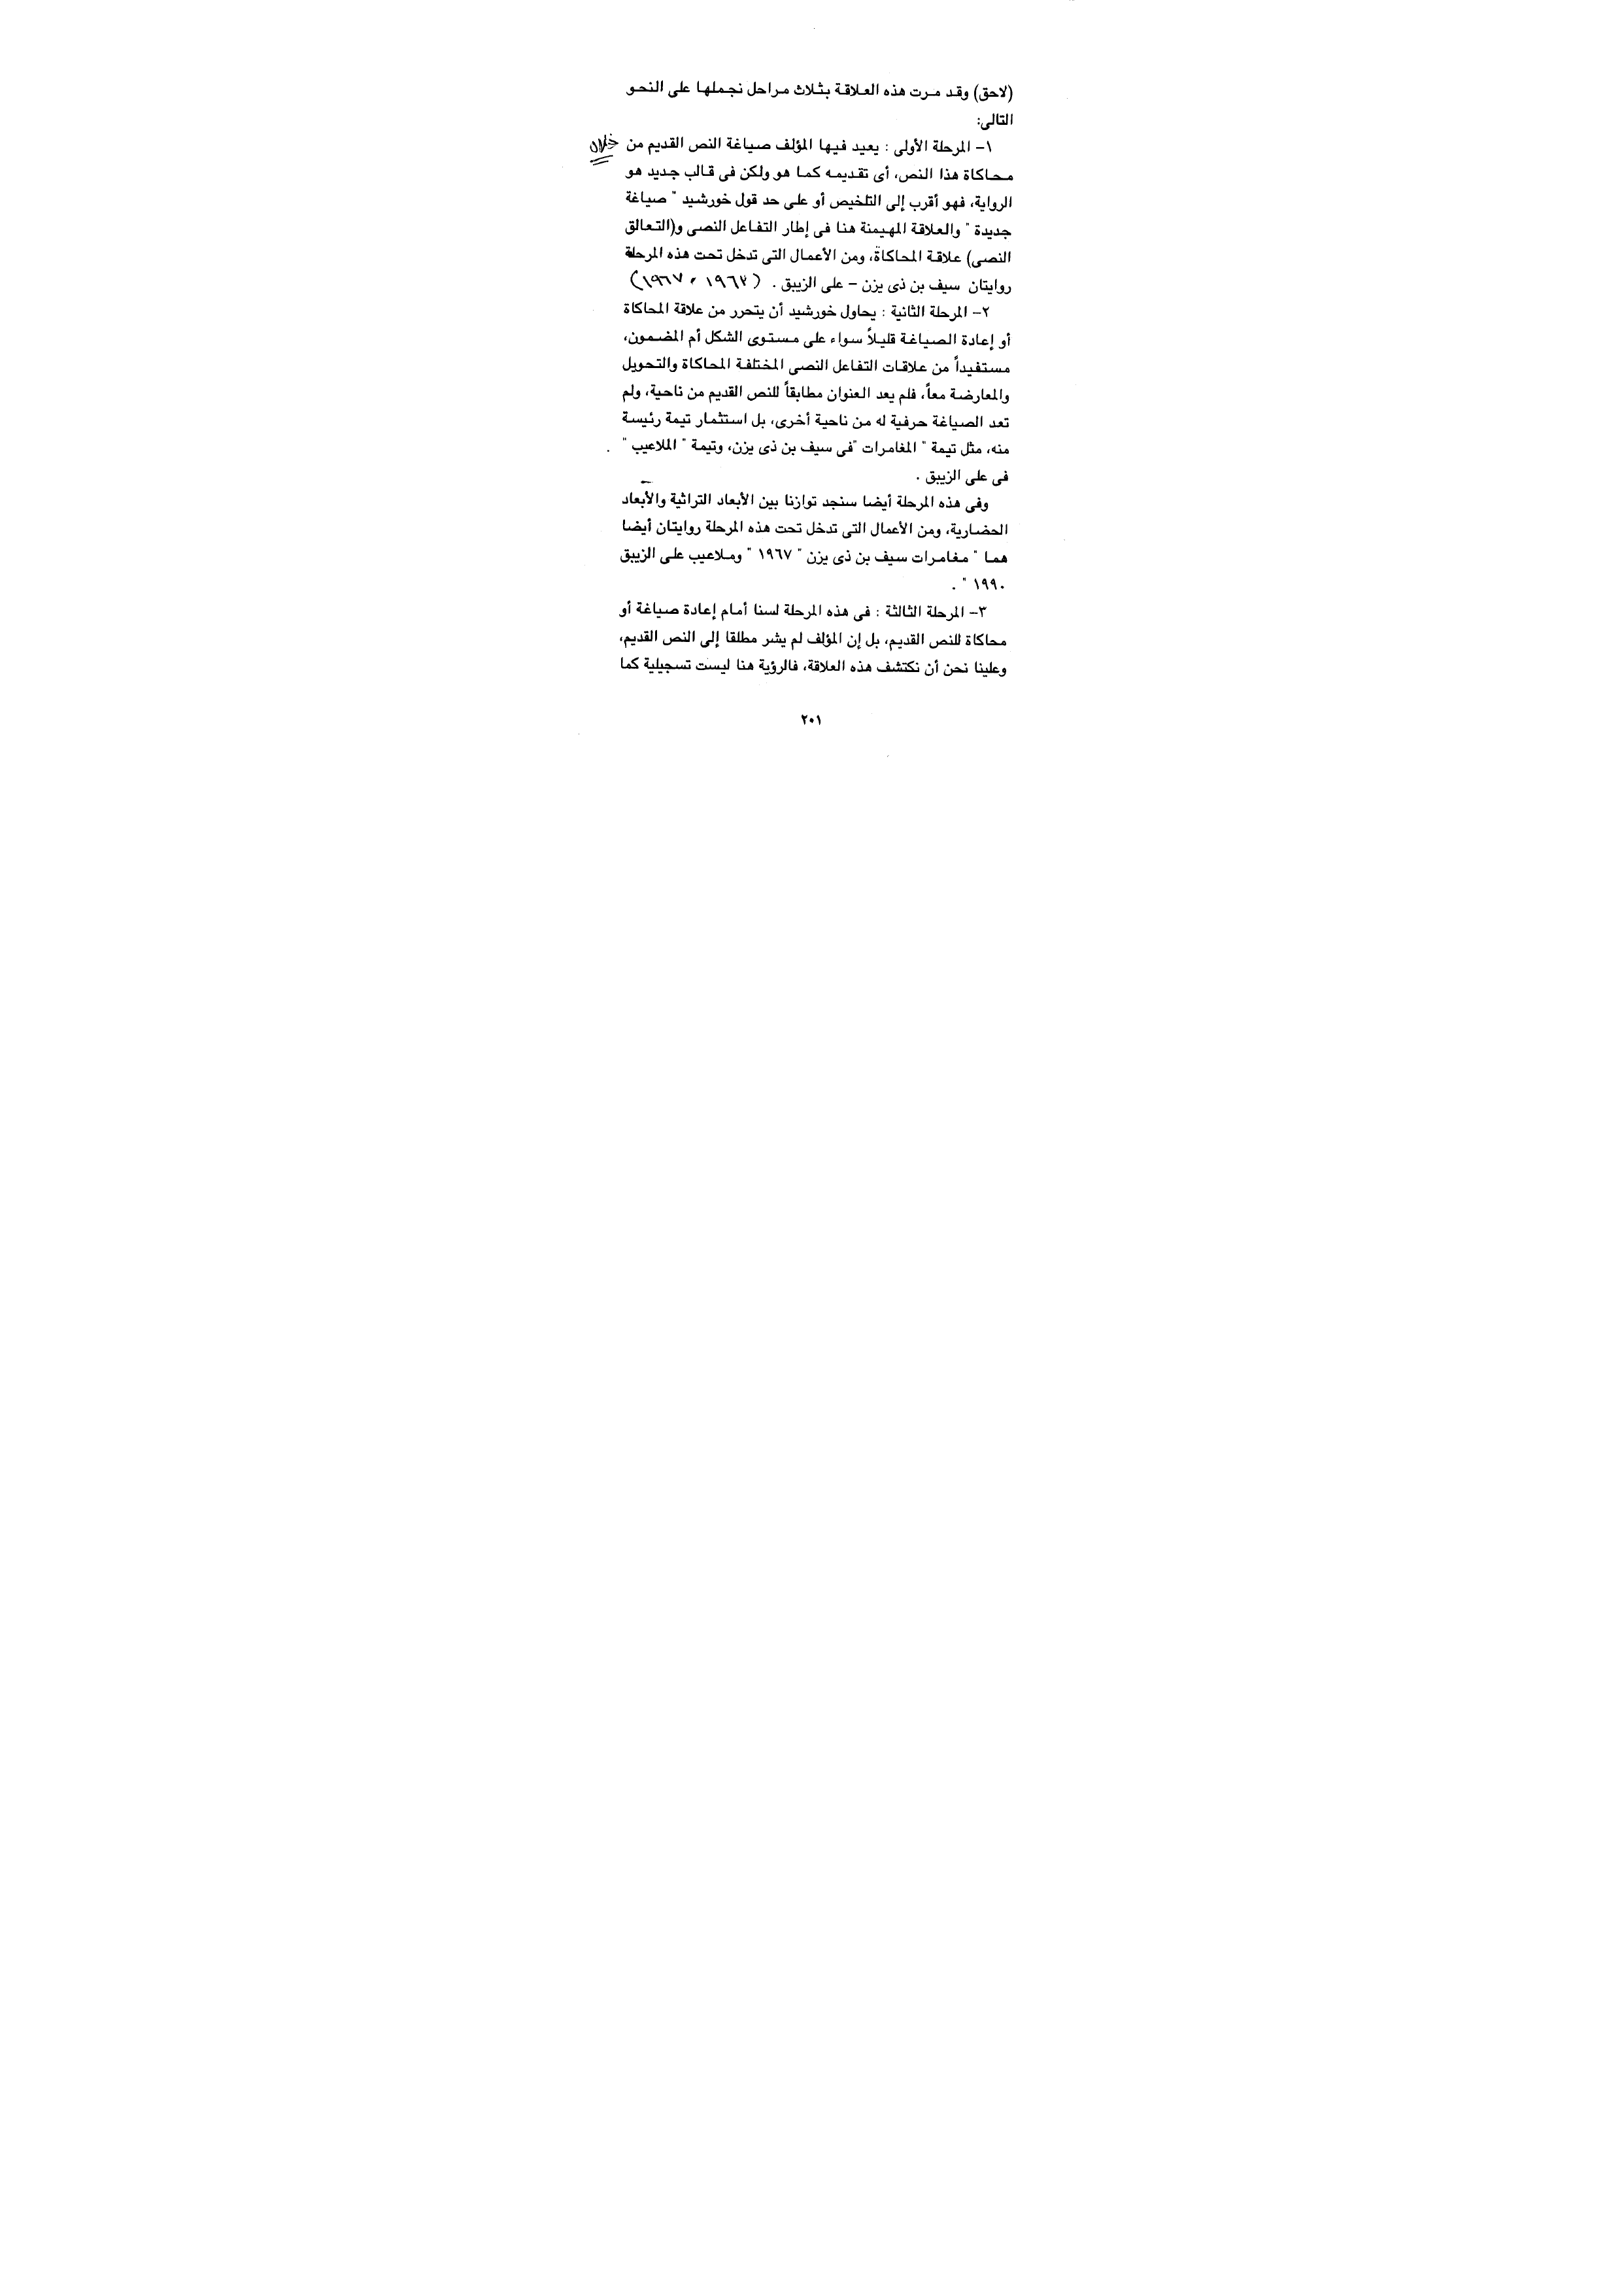 (لاحق) وقد مرت هذه العلاقة بثلاث مراحل نجملها على النحو
التالى:
١- المرحلة الأولى : يعيد فيها المؤلف صياغة النص القديم من خلال
محاكاة هذا النص، أى تقديمه كما هو ولكن فى قالب جديد هو
الرواية، فهو أقرب إلى التلخيص أو على حد قول خورشيد " صياغة
جديدة " والعلاقة المهيمنة هنا فى إطار التفاعل النصى و(التعالق
النصى) علاقة المحاكاة، ومن الأعمال التى تدخل تحت هذه المرحلة
روايتان سيف بن ذى يزن – على الزيبق . (١٩٦٣ ، ١٩٦٧)
٢- المرحلة الثانية : يحاول خورشيد أن يتحرر من علاقة المحاكاة
أو إعادة الصياغة قليلاً سواء على مستوى الشكل أم المضمون،
مستفيداً من علاقات التفاعل النصى المختلفة المحاكاة والتحويل
والمعارضة معاً، فلم يعد العنوان مطابقاً للنص القديم من ناحية، ولم
تعد الصياغة حرفية له من ناحية أخرى، بل استثمار تيمة رئيسة
منه، مثل تيمة " المغامرات "فى سيف بن ذى يزن، وتيمة " الملاعيب " .
فى على الزيبق .
وفى هذه المرحلة أيضا سنجد توازنا بين الأبعاد التراثية والأبعاد
الحضارية، ومن الأعمال التى تدخل تحت هذه المرحلة روايتان أيضا
هما " مغامرات سيف بن ذى يزن " ١٩٦٧ " وملاعيب على الزيبق
١٩٩٠ " .
٣- المرحلة الثالثة : فى هذه المرحلة لسنا أمام إعادة صياغة أو
محاكاة للنص القديم، بل إن المؤلف لم يشر مطلقا إلى النص القديم،
وعلينا نحن أن نكتشف هذه العلاقة، فالرؤية هنا ليست تسجيلية كما
٢٠١